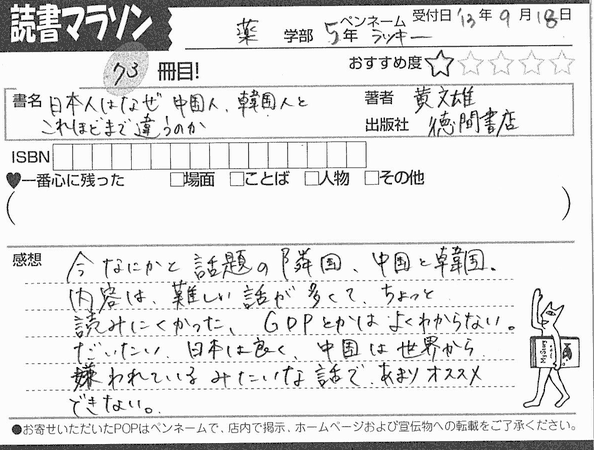 読書マラソン
薬 学部 5年 ペンネーム ラッキー 受付日 '13年9月18日
73 冊目! おすすめ度 ☆☆☆☆☆
書名 日本人はなぜ中国人、韓国人と
これほどまで違うのか
著者 黄文雄
出版社 徳間書店
ISBN
♥一番心に残った □場面 □ことば □人物 □その他
( )
感想 今なにかと話題の隣国、中国と韓国。
内容は、難しい話が多くて、ちょっと
読みにくかった、GDPとかはよくわからない。
だいたい、日本は良く、中国は世界から
嫌われているみたいな話で、あまりオススメ
できない。
●お寄せいただいたPOPはペンネームで、店内で掲示、ホームページおよび宣伝物への転載をご了承ください。